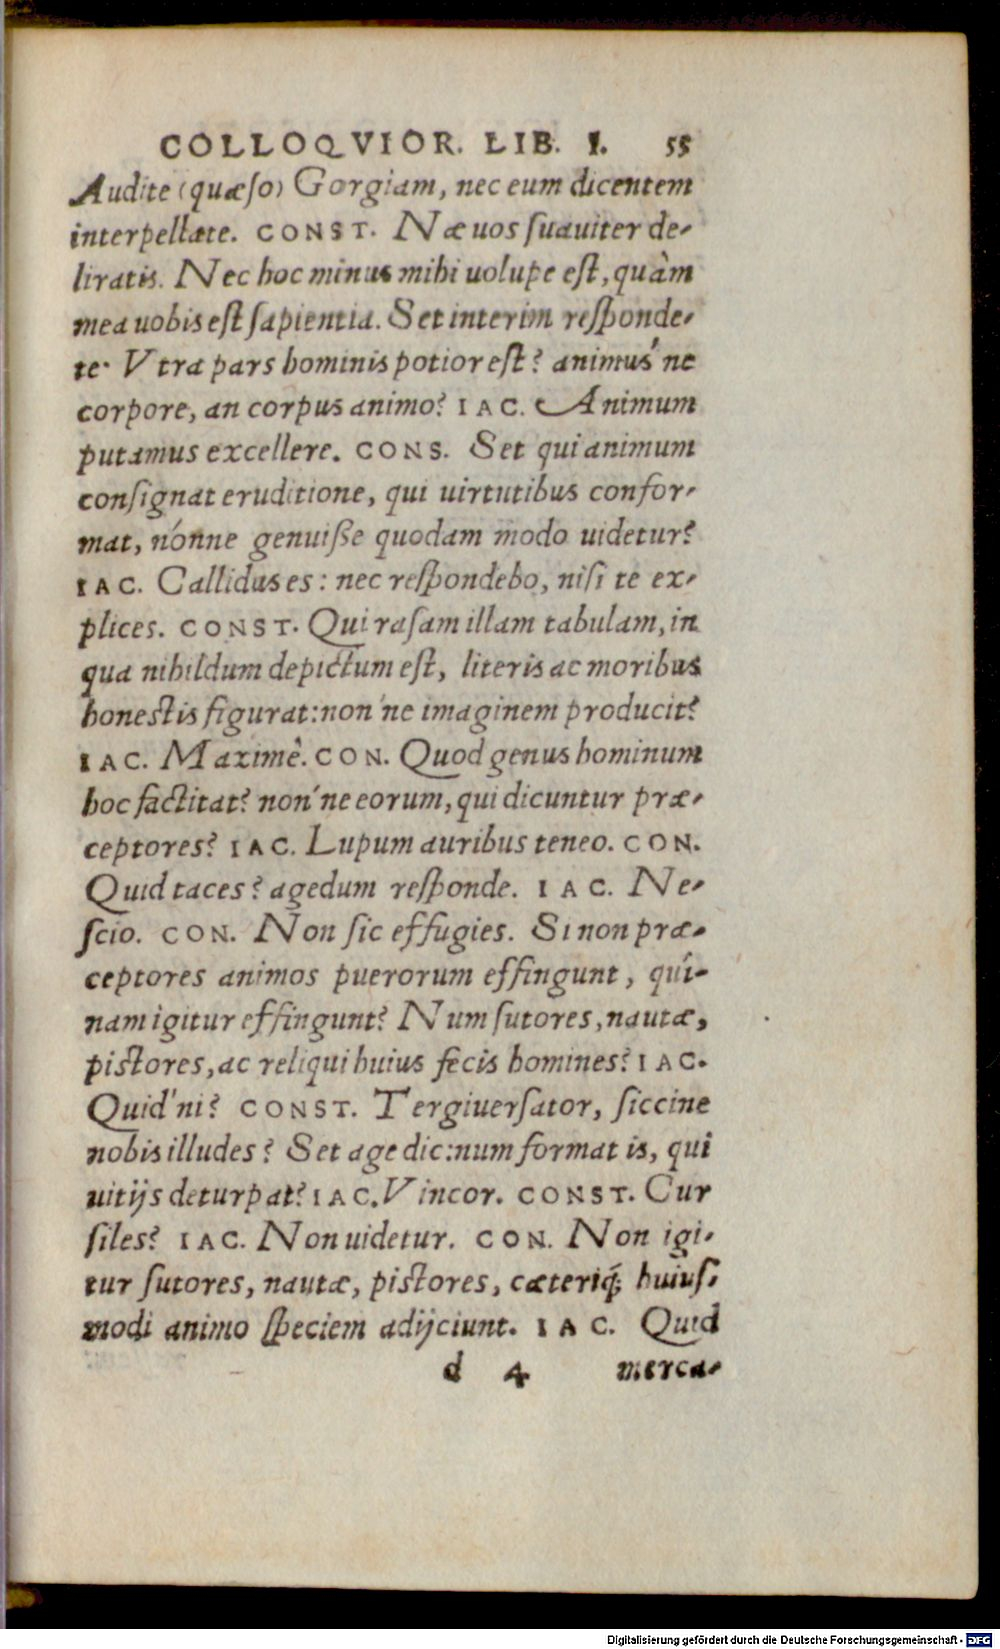 COLLOQVIOR. LIB. I. 55
Audite (quæso) Gorgiam, nec eum dicentem
interpellate. CONST. Næ uos suauiter de-
liratis. Nec hoc minus mihi uolupe est, quàm
mea uobis est sapientia. Set interim responde-
te. Vtra pars hominis potior est? animus'ne
corpore, an corpus animo? IAC. Animum
putamus excellere. CONS. Set qui animum
consignat eruditione, qui uirtutibus confor-
mat, nónne genuisse quodam modo uidetur?
IAC. Callidus es: nec respondebo, nisi te ex-
plices. CONST. Qui rasam illam tabulam, in
qua nihildum depictum est, literis ac moribus
honestis figurat: non'ne imaginem producit?
IAC. Maximè. CON. Quod genus hominum
hoc factitat? non'ne eorum, qui dicuntur præ-
ceptores? IAC. Lupum auribus teneo. CON.
Quid taces? agedum responde. IAC. Ne-
scio. CON. Non sic effugies. Si non præ-
ceptores animos puerorum effingunt, quí-
nam igitur effingunt? Num sutores, nautæ,
pistores, ac reliqui huius fecis homines? IAC.
Quid'ni? CONST. Tergiuersator, siccine
nobis illudes? Set age dic: num format is, qui
uitijs deturpat? IAC. Vincor. CONST. Cur
siles? IAC. Non uidetur. CON. Non igi-
tur sutores, nautæ, pistores, cæteriq́; huius-
modi animo speciem adijciunt. IAC. Quid
d 4 merca-
Digitalisierung gefördert durch die Deutsche Forschungsgemeinschaft - DFG